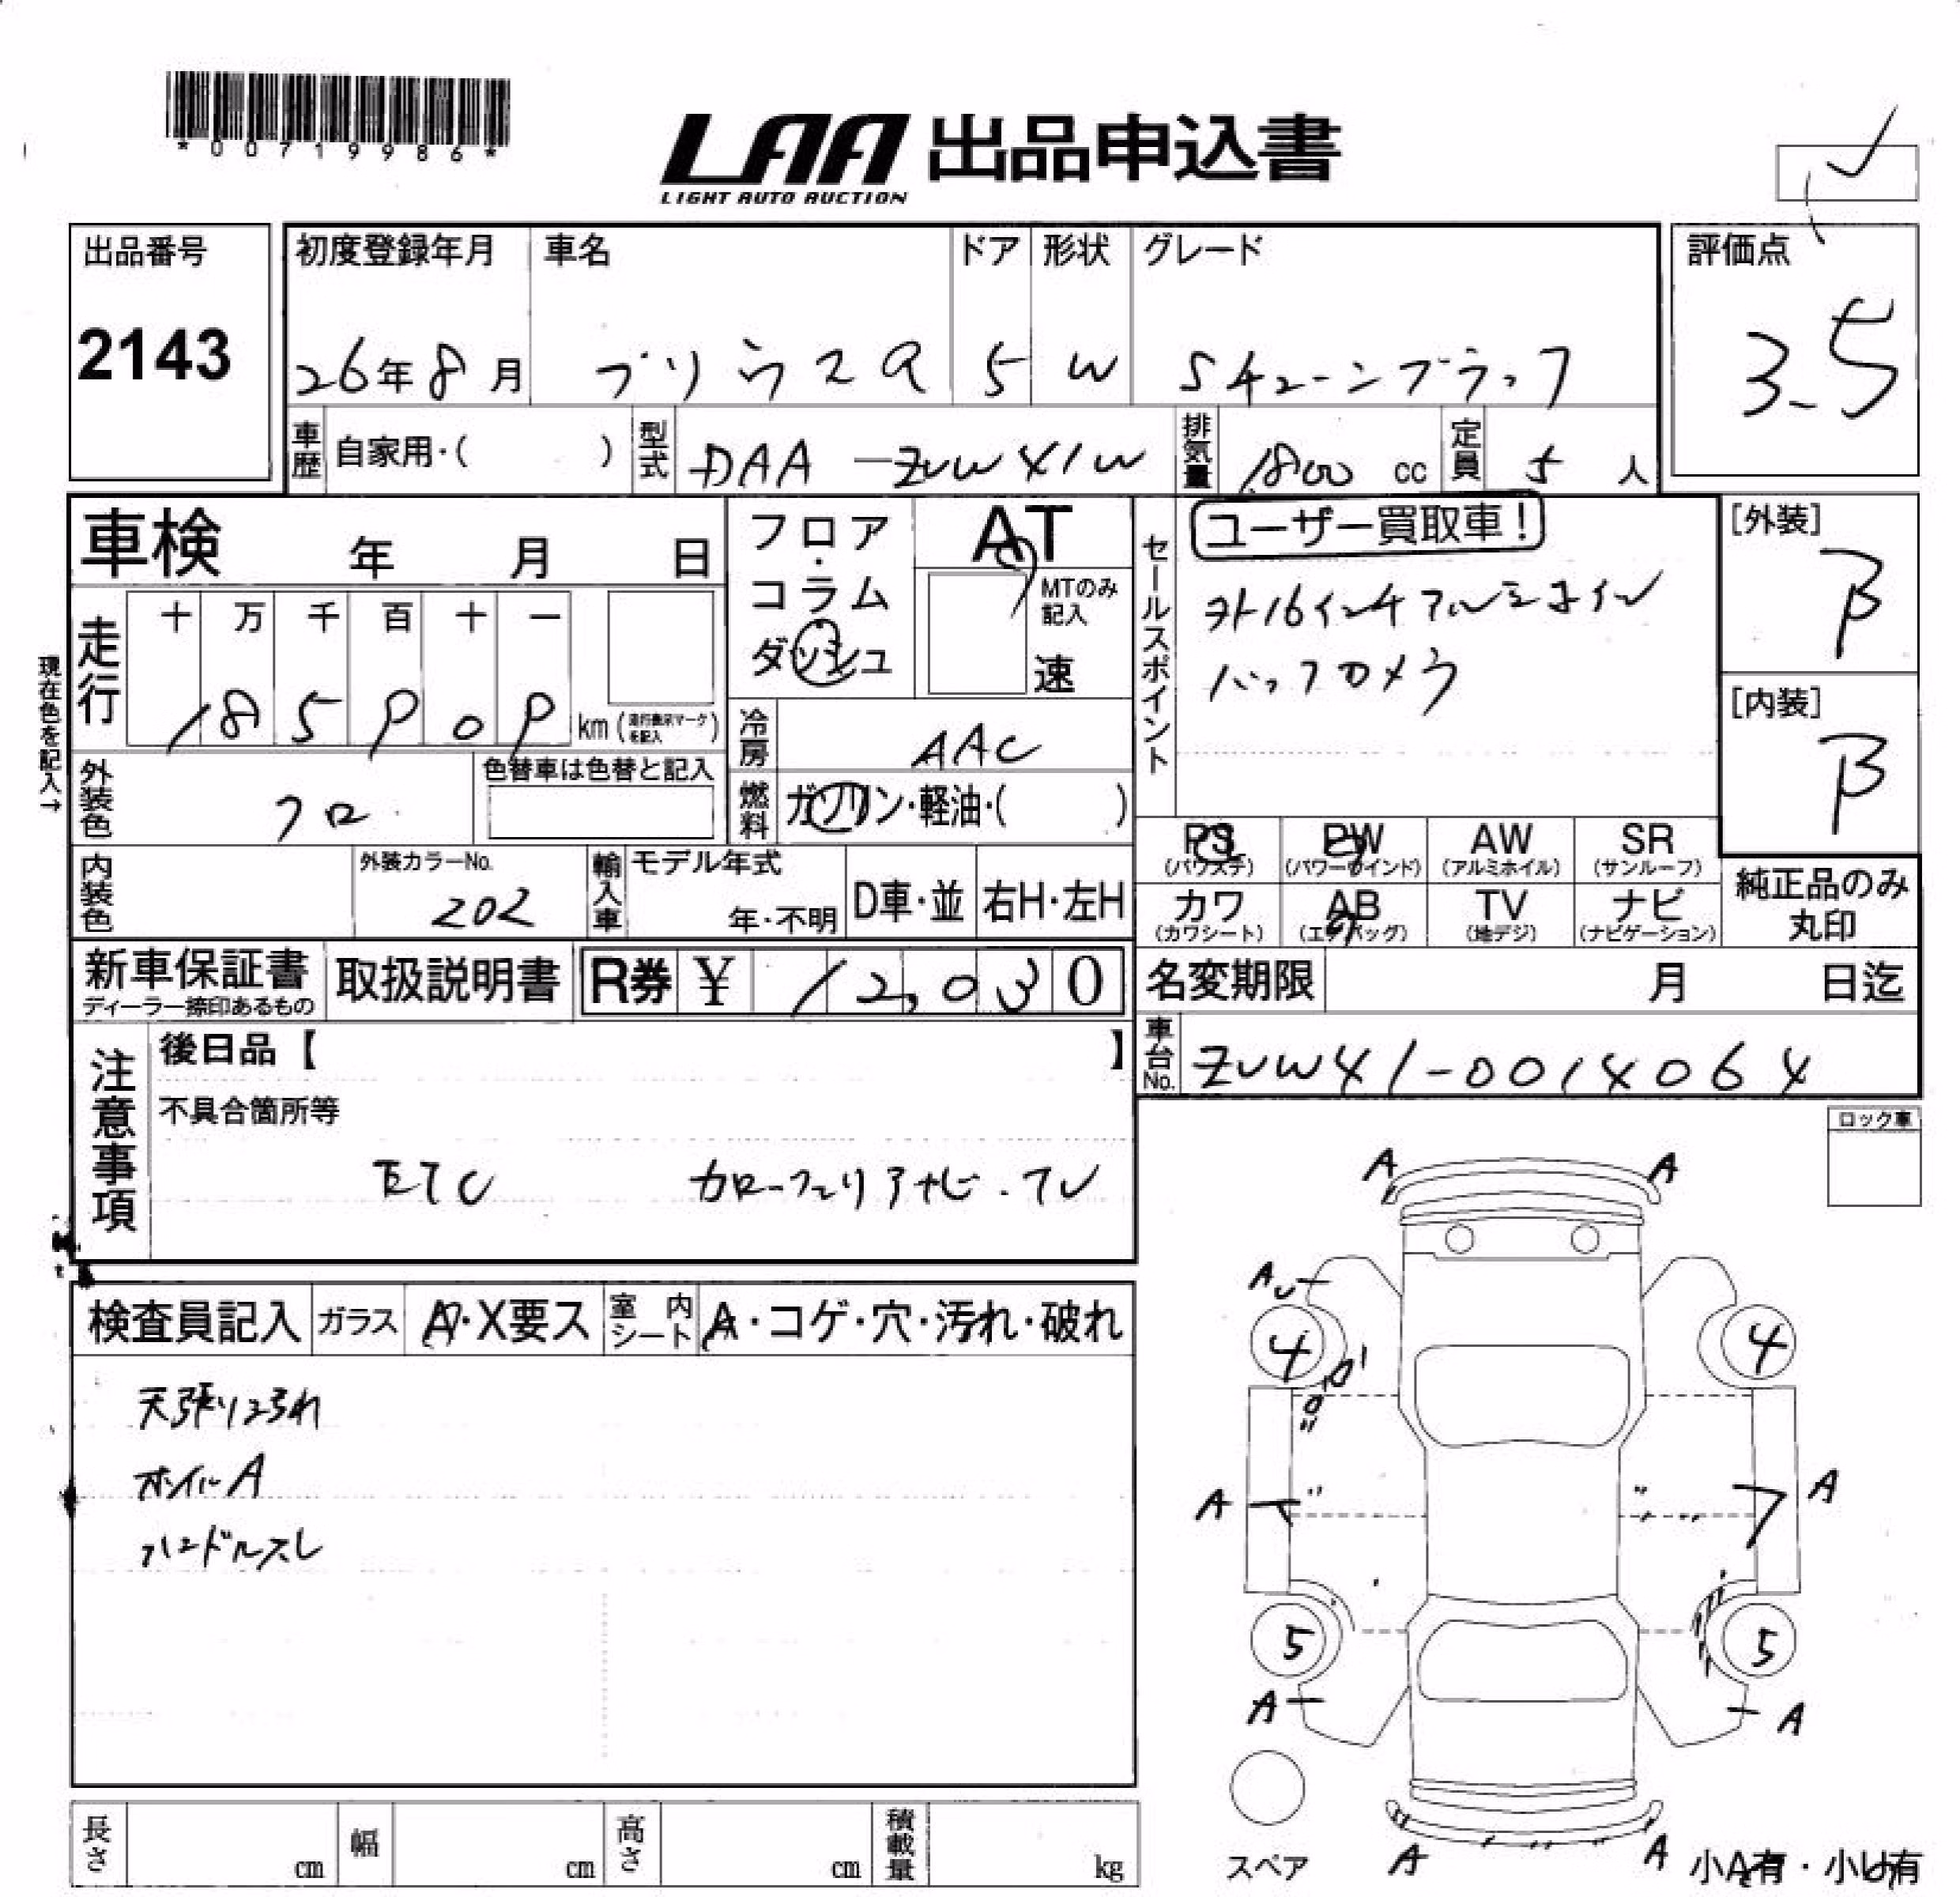 *00719986*
LAA 出品申込書
LIGHT AUTO AUCTION
出品番号
2143
初度登録年月 車名 ドア 形状 グレード
26年8月 プリウスα 5 W Sチューンブラック
評価点
3.5
車歴 自家用・( ) 型式 DAA-ZVW41W 排気量 1800 cc 定員 5 人
車検 年 月 日
フロア・コラム ダッシュ
AT
MTのみ記入
速
現在色を記入→
走行 十 万 千 百 十 一
km (走行表示マークを記入)
冷房 AAC
外装色 クロ 色替車は色替と記入
燃料 ガソリン・軽油・( )
内装色 外装カラーNo. 202
輸入車 モデル年式 年・不明 D車・並 右H・左H
セールスポイント
ユーザー買取車!
バックカメラ
[外装]
B
[内装]
B
PS (パワステ) PW (パワーウインド) AW (アルミホイル) SR (サンルーフ)
カワ (カワシート) AB (エアバッグ) TV (地デジ) ナビ (ナビゲーション)
純正品のみ丸印
新車保証書 ディーラー捺印あるもの 取扱説明書 R券 ¥ 12,030
名変期限 月 日迄
車台No. ZVW41-0014064
注意事項
後日品【 】
不具合箇所等
ETC カロッツェリアナビ・TV
ロック車
検査員記入 ガラス A・X要ス 室内シート A・コゲ・穴・汚れ・破れ
天張り汚れ
ホイルA
ハンドルスレ
A A
A
4 4
A A
5 5
A A
スペア
A A
小A有・小U有
長さ cm 幅 cm 高さ cm 積載量 kg